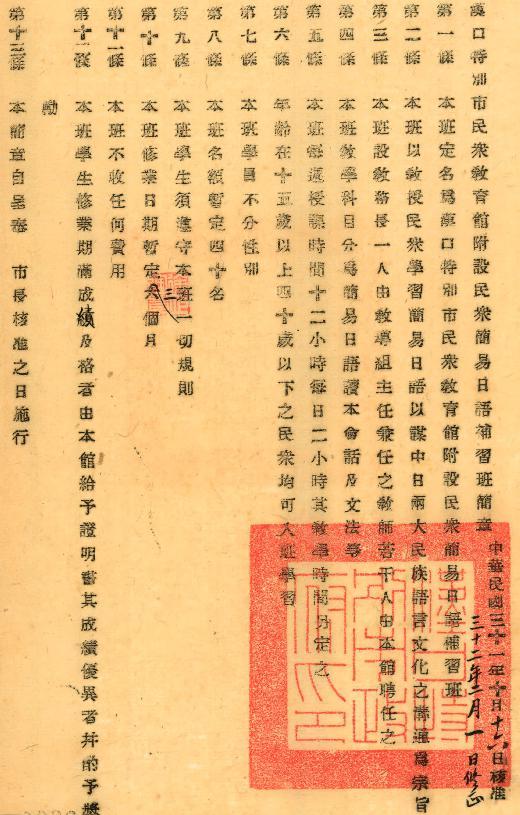 漢口特別市民衆教育館附設民衆簡易日語補習班簡章
中華民國三十一年十日十六日核准
三十二年二月一日修正
第一條 本班定名爲漢口特別市民衆教育館附設民衆簡易日語補習班
第二條 本班以教授民衆學習簡易日語以謀中日兩大民族語言文化之溝通爲宗旨
第三條 本班設教務長一人由教導組主任兼任之教師若干人由本館聘任之
第四條 本班教學科目分爲簡易日語讀本會話及文法等
第五條 本班每週授課時間十二小時每日二小時其教學時間另定之
第六條 年齡在十五歲以上四十歲以下之民衆均可入班學習
第七條 本班學員不分性別
第八條 本班名額暫定四十名
第九條 本班學生須遵守本班一切規則
第十條 本班修業日期暫定六個月
三
第十一條 本班不收任何費用
第十二條 本班學生修業期滿成績及格者由本館給予證明書其成績優異者并酌予獎
勵
第十三條 本簡章自呈奉 市長核准之日施行